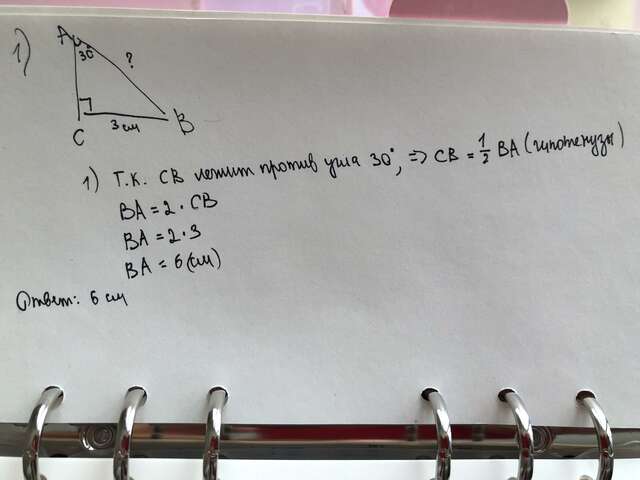 1)
A
30°
?
C
3 см
B
1) Т.К. СВ лежит против угла 30°, => CB = 1/2 BA (гипотенузы)
BA = 2 · CB
BA = 2 · 3
BA = 6 (см)
Ответ: 6 см